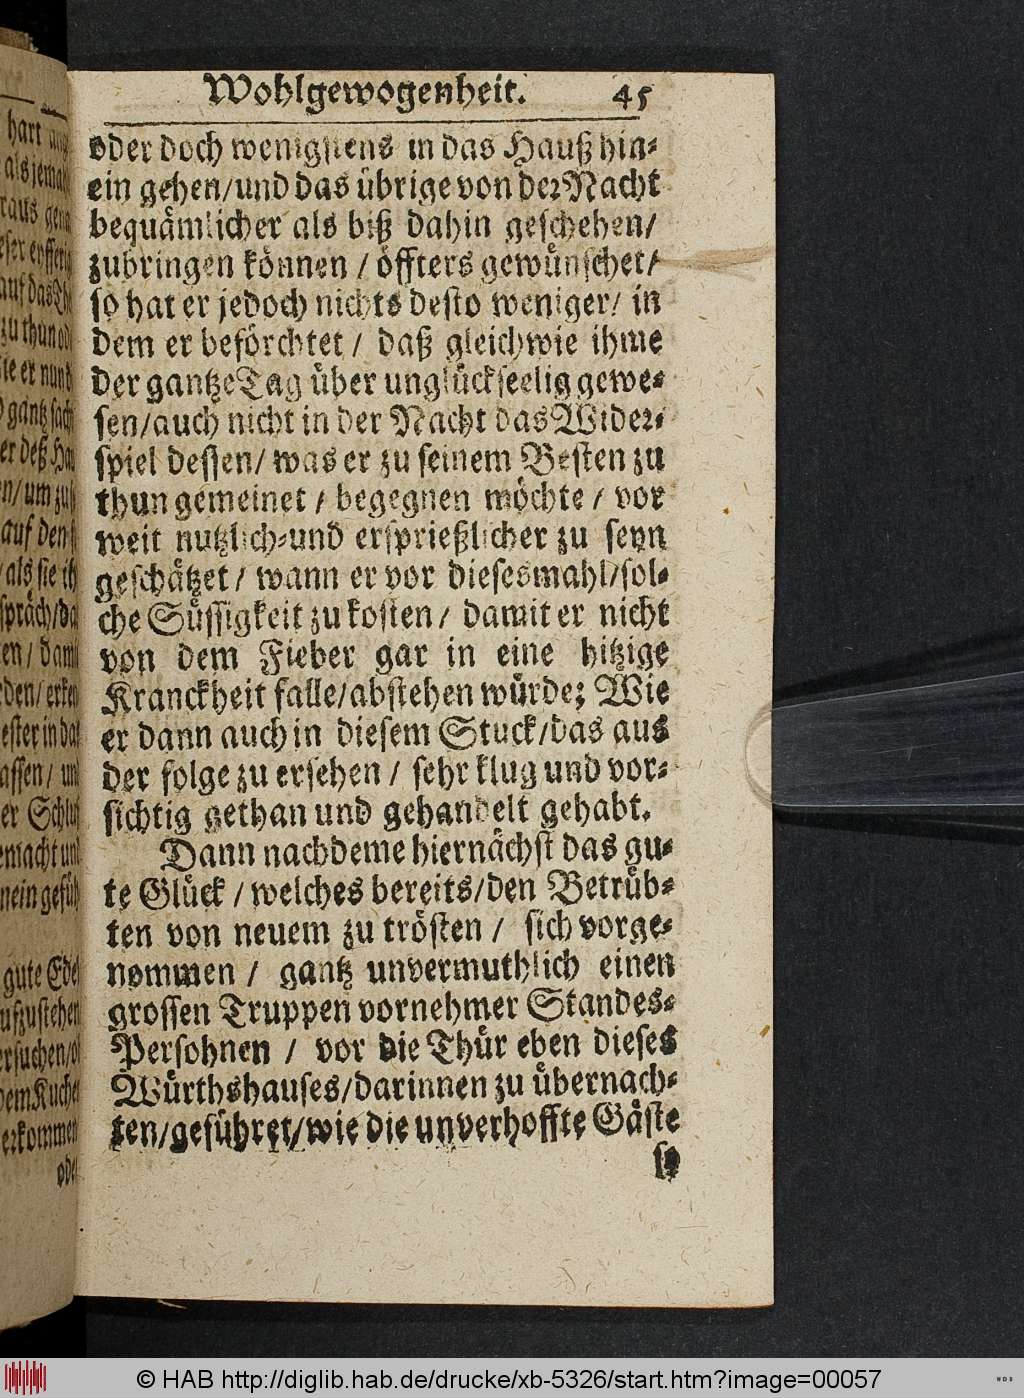 Wohlgewogenheit. 45
oder doch wenigstens in das Hauß hin-
ein gehen/und das übrige von der Nacht
bequämlicher als biß dahin geschehen/
zubringen können / öffters gewünschet/
so hat er jedoch nichts desto weniger/ in
dem er beförchtet / daß gleichwie ihme
der gantze Tag über unglückseelig gewe-
sen/auch nicht in der Nacht das Wider-
spiel dessen/ was er zu seinem Besten zu
thun gemeinet / begegnen möchte / vor
weit nutzlich-und ersprießlicher zu seyn
geschätzet / wann er vor diesesmahl/sol-
che Süssigkeit zu kosten / damit er nicht
von dem Fieber gar in eine hitzige
Kranckheit falle/abstehen würde; Wie
er dann auch in diesem Stuck/das aus
der folge zu ersehen / sehr klug und vor-
sichtig gethan und gehandelt gehabt.
Dann nachdeme hiernächst das gu-
te Glück / welches bereits/den Betrüb-
ten von neuem zu trösten / sich vorge-
nommen / gantz unvermuthlich einen
grossen Truppen vornehmer Standes-
Persohnen / vor die Thür eben dieses
Würthshauses/darinnen zu übernach-
ten/geführet/wie die unverhoffte Gäste
so
hart
als jemahl
raus
auf das
zu thun
er nun
gantz
er deß
um
auf den
als sie
en / dami
den/
in das
assen /
er
gute Ede
ufzustehen
ersuchen/
dem Kuche
erkommen
ode
© HAB http://diglib.hab.de/drucke/xb-5326/start.htm?image=00057